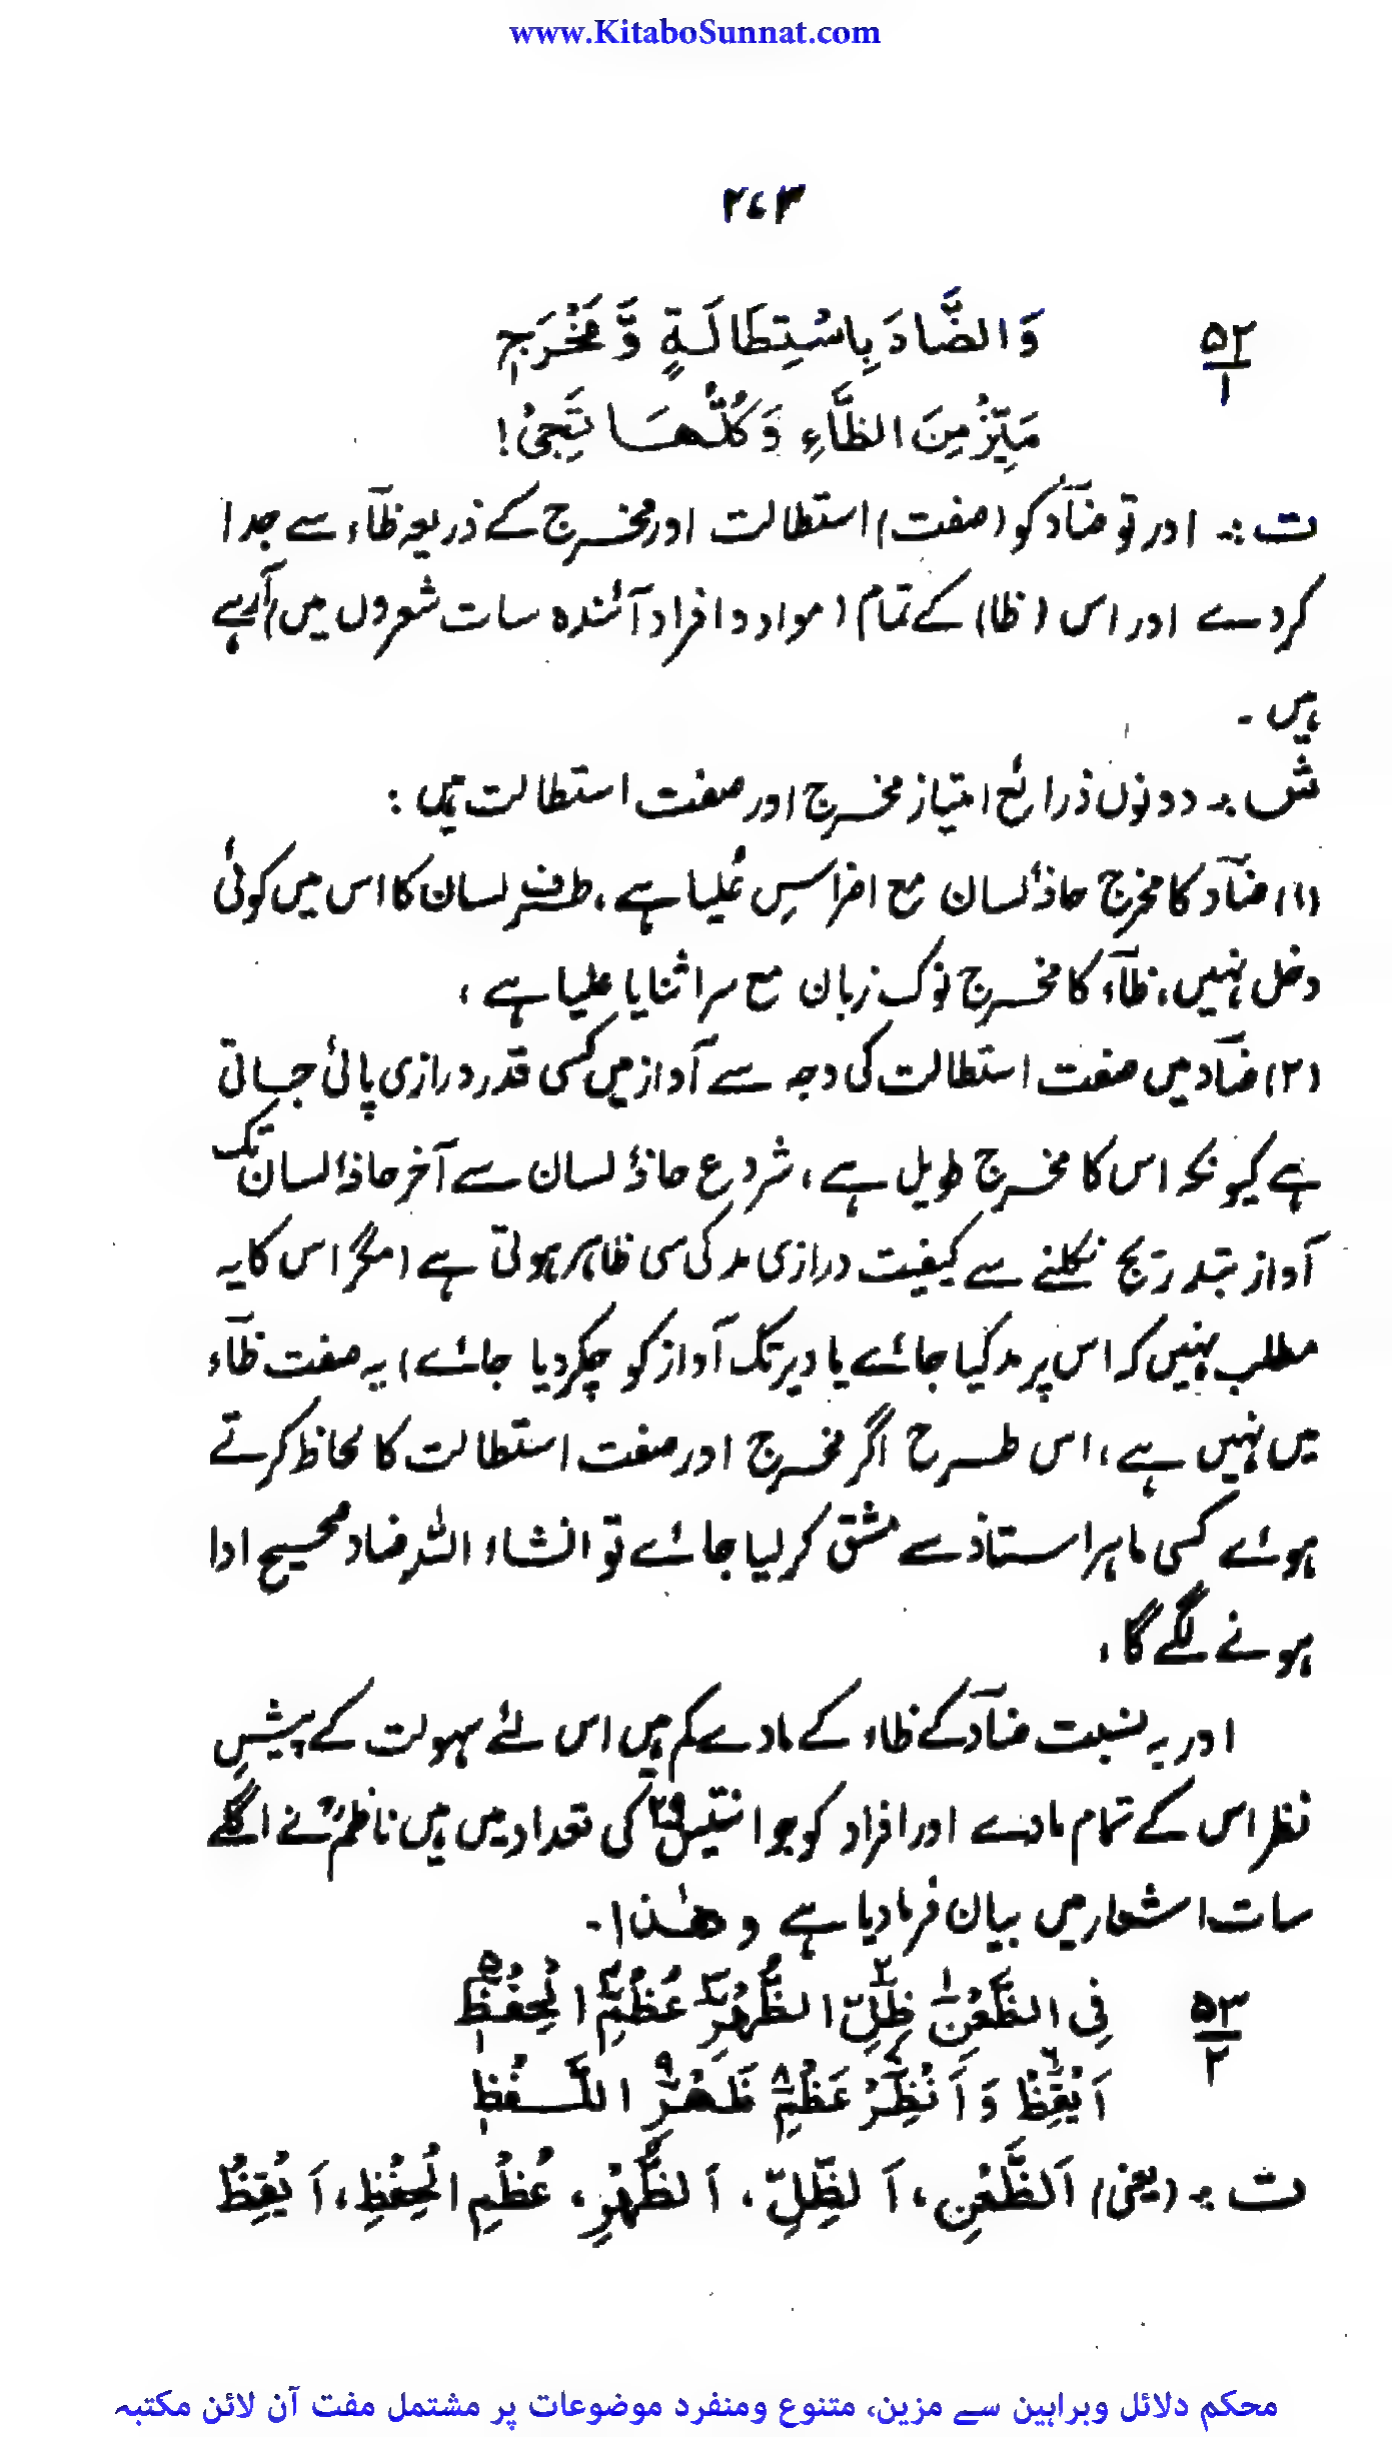 www.KitaboSunnat.com
۲۷۳
۵۲/۱ وَالضَّادَ بِاسْتِطَالَةٍ وَّمَخْرَجٖ
مَيِّزْ مِنَ الظَّاءِ وَكُلُّهَا تَجِیْ!
ت :۔ اور تو ضآد کو (صفت) استطالت اور مخرج کے ذریعہ ظآء سے جدا
کردے اور اس (ظا) کے تمام (مواد و افراد آئندہ سات شعروں میں) آرہے
ہیں ۔
ش :۔ دونوں ذرائع امتیاز مخرج اور صفت استطالت ہیں :
(۱) ضآد کا مخرج حافۂ لسان مع اضراسِ عُلیا ہے، طرفِ لسان کا اس میں کوئی
دخل نہیں، ظآء کا مخرج نوک زبان مع سرا ثنایا علیا ہے ،
(۲) ضآد میں صفت استطالت کی وجہ سے آواز میں کسی قدر درازی پائی جاتی
ہے کیونکہ اس کا مخرج طویل ہے، شروع حافۂ لسان سے آخر حافۂ لسان تک
آواز بتدریج نکلنے سے کیفیت درازی مد کی سی ظاہر ہوتی ہے (مگر اس کا یہ
مطلب نہیں کہ اس پر مد کیا جائے یا دیر تک آواز کو چکر دیا جائے) یہ صفت ظآء
میں نہیں ہے، اس طرح اگر مخرج اور صفت استطالت کا لحاظ کرتے
ہوئے کسی ماہر استاذ سے مشق کر لیا جائے تو انشاء اللہ ضاد صحیح ادا
ہونے لگے گا ،
اور یہ نسبت ضآد کے ظاء کے مادے کم ہیں اس لئے سہولت کے پیشِ
نظر اس کے تمام مادے اور افراد کو جو انتیس ۲۹ کی تعداد میں ہیں ناظمؒ نے اگلے
سات اشعار میں بیان فرمادیا ہے وھٰذا۔
۵۳/۲ فِی الظَّعْنِ۱ ظِلِّ۲ الظُّهْرِ۳ عُظْمِ۴ الْحِفْظِ۵
اَيْقِظْ۶ وَاَنْظِرْ۷ عَظْمِ۸ ظَهْرِ۹ اللَّفْظِ
ت :۔ (یعنی) اَلظَّعْنِ، اَلظِّلِّ، اَلظُّهْرِ، عُظْمِ الْحِفْظِ، اَيْقِظْ
محکم دلائل وبراہین سے مزین، متنوع ومنفرد موضوعات پر مشتمل مفت آن لائن مکتبہ